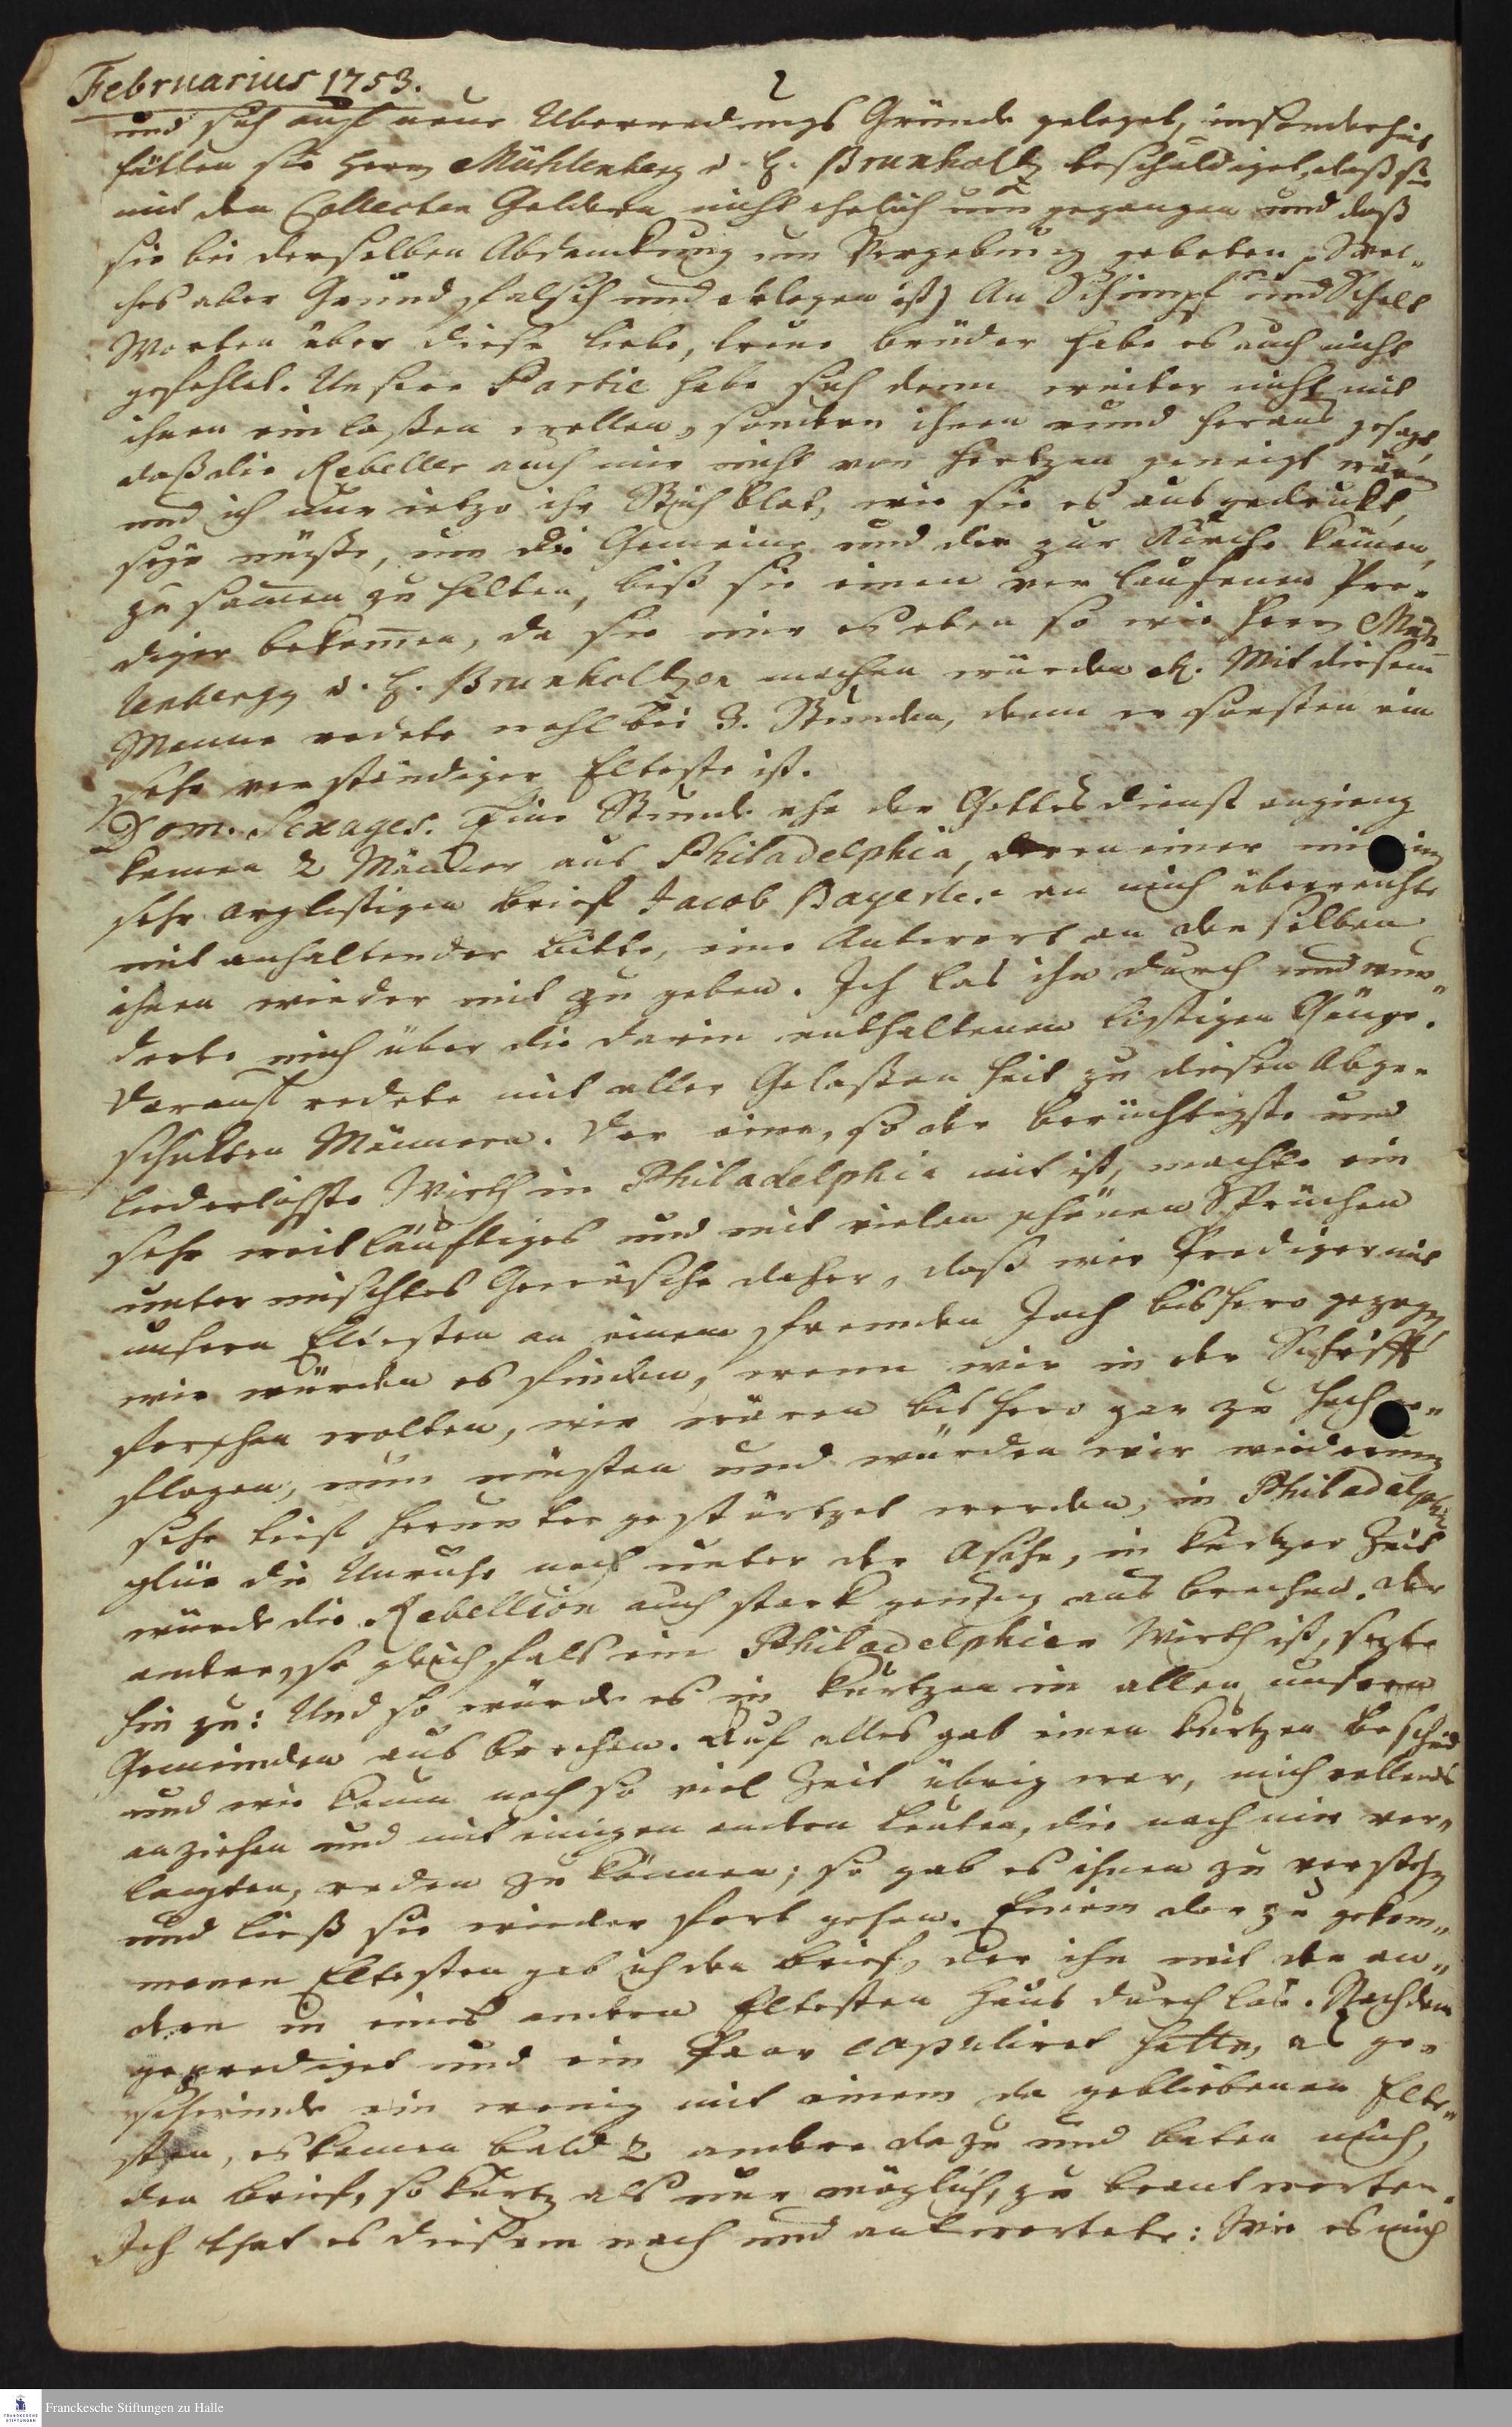 Februarius 1753.
2
und sich auf neue Uberredungs Gründe geleget, insonderheit
hätten sie Herrn Mühlenberg u. H. Brunholtz beschuldiget, daß sie
mit den Collecten Geldern nicht ehrlich umgegangen und daß
sie bei derselben Abdanckung um Vergebung gebeten (Wel-
ches aber Grund falsch und erlogen ist) An Schimpf und Schelt
Worten über diese liebe, treue brüder habe es auch nicht
gefehlet. Unsere Partie habe sich denn weiter nicht mit
ihnen einlaßen wollen, sondern ihnen rund heraus gesagt,
daß die Rebeller auch mir nicht von Hertzen geneigt wären
und ich nur ietzo ihr Stich blat, wie sie es ausgedruckt,
seyn müßte, um die Gemeine und die zur Kirche kämen,
zusamen zu halten, biß sie einen verlaufenen Pre-
diger bekomen, da sie mir es eben so wie Herrn Müh-
lenbergen u. H. Brunholtzen machen würden etc. Mit diesem
Manne redete wohl bei 3. Stunden, denn er sonsten ein
sehr verständiger Elteste ist.
Dom. Sexages. Eine Stunde ehe der Gottesdienst angieng
kamen 2 Männer aus Philadelphia, deren einer mir einen
sehr arglistigen brief Jacob Bayerle. an mich überreichte
mit anhaltender bitte, eine Antwort an denselben
ihnen wieder mit zu geben. Ich las ihn durch und wun-
derte mich über die darin enthaltenen listigen Gänge.
Darauf redete mit aller Gelaßenheit zu diesen Abge-
schickten Männern. Der eine, so der berüchtigste und
liederlichste Wirth in Philadelphia mit ist, machte ein
sehr weitläuftiges und mit vielen schönen Sprüchen
untermischtes Gewäsche daher, daß wir Prediger mit
unsern Eltesten an einem fremden Joch bishero gezogen
wir würden es finden, wenn wir in der Schrifft
forschen wolten, wir wären bishero gar zu hoch ge-
flogen, nun müsten und würden wir wiederum
sehr tief herunter gestürtzet werden, in Philadelphia
glüe die Unruhe noch unter der Asche, in kurtzer Zeit
würde die Rebellion auch starck genug ausbrechen. der
andere, so gleichfals ein Philadelphier Wirth ist, setzte
hinzu: Und so würde es in kurtzen in allen unsern
Gemeinden ausbrechen. Auf alles gab einen kurtzen bescheid
und wie kaum noch so viel Zeit übrig war, mich vollends
anziehen und mit einigen andern Leuten, die nach mir ver-
langten, reden zu können; so gab es ihnen zu verstehen
und ließ sie wieder fort gehen. Einem der zu gekom-
menen Eltesten gab ich den brief, der ihn mit den an-
dern in eines andern Eltesten Haus durchlase. Nachdem
geprediget und ein Paar copuliret hatte, as ge-
schwinde ein wenig mit einem da gebliebenen Elte-
sten, es kamen bald 2 andere dazu und baten mich,
den brief, so kurtz als nur möglich, zu beantworten.
Ich that es diesem nach und antwortete: Wie es mich
Franckesche Stiftungen zu Halle